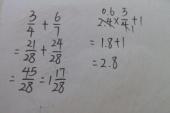 3/4 + 6/7
= 21/28 + 24/28
= 45/28 = 1 17/28
2.4 × 3/4 + 1
0.6
1
= 1.8 + 1
= 2.8